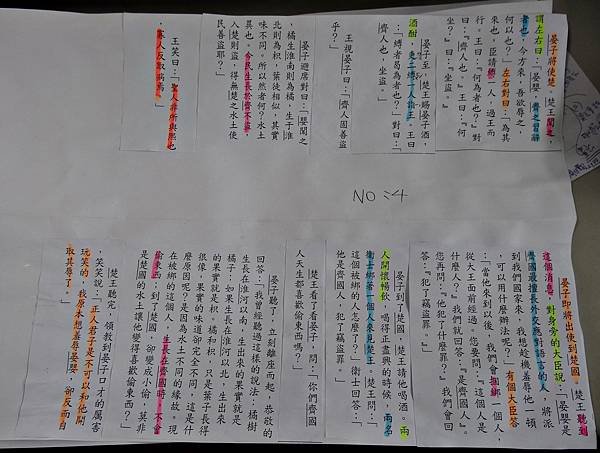 晏子將使楚。楚王聞之,
謂左右曰:「晏嬰,齊之習辭
者也,今方來,吾欲辱之,
何以也?」左右對曰:「為其
來也,臣請縛一人,過王而
行。王曰:『何為者也?』對
曰:『齊人也。』王曰:『何
坐?』曰:『坐盜。』
晏子至,楚王賜晏子酒,
酒酣,吏二縛一人詣王。王曰
:「縛者曷為者也?」對曰:
「齊人也,坐盜。」
王視晏子曰:「齊人固善盜
乎?」
晏子避席對曰:「嬰聞之
,橘生淮南則為橘,生于淮
北則為枳,葉徒相似,其實
味不同。所以然者何?水土
異也。今民生長於齊不盜,
入楚則盜,得無楚之水土使
民善盜耶?」
王笑曰:「聖人非所與熙也
,寡人反取病焉。」
NO:4
晏子即將出使到楚國。楚王聽到
這個消息,對身旁的大臣說:「晏嬰是
齊國最擅長外交應對語言的人,將派
到我們國家來,我想趁機羞辱他一頓
,可以用什麼辦法呢?」有個大臣答
:「當他來到以後,我們會捆綁一個人,
從大王面前經過。您要問:『這個人是
什麼人?』我們就回答:『是齊國人。』
您再問:『他犯了什麼罪?』我們會回
答:『犯了竊盜罪。』」
晏子到了楚國,楚王請他喝酒。兩
人開懷暢飲,喝得正盡興的時候,兩名
衛士綁著一個人來見楚王,楚王問:「
這個被綁的人怎麼了?」衛士回答:「
他是齊國人,犯了竊盜罪。」
楚王看了看晏子,問:「你們齊國
人天生都喜歡偷東西嗎?」
晏子聽了,立刻離座而起,恭敬的
回答:「我曾經聽過這樣的說法,橘樹
生長在淮河以南,生出來的果實就是
橘子;如果生長在淮河以北,生出來
的果實就是枳。橘和枳,只是葉子長得
很像,果實的味道卻完全不同,這是什
麼原因呢?是因為水土不同的緣故。現
在被綁的這個人,生長在齊國時,不會
偷東西;到了楚國,卻變成小偷,莫非
是楚國的水土讓他變得喜歡偷東西?」
楚王聽完,領教到晏子口才的厲害
,笑笑說:「正人君子是不可以和他開
玩笑的,我原本想羞辱晏嬰,卻反而自
取其辱了。」